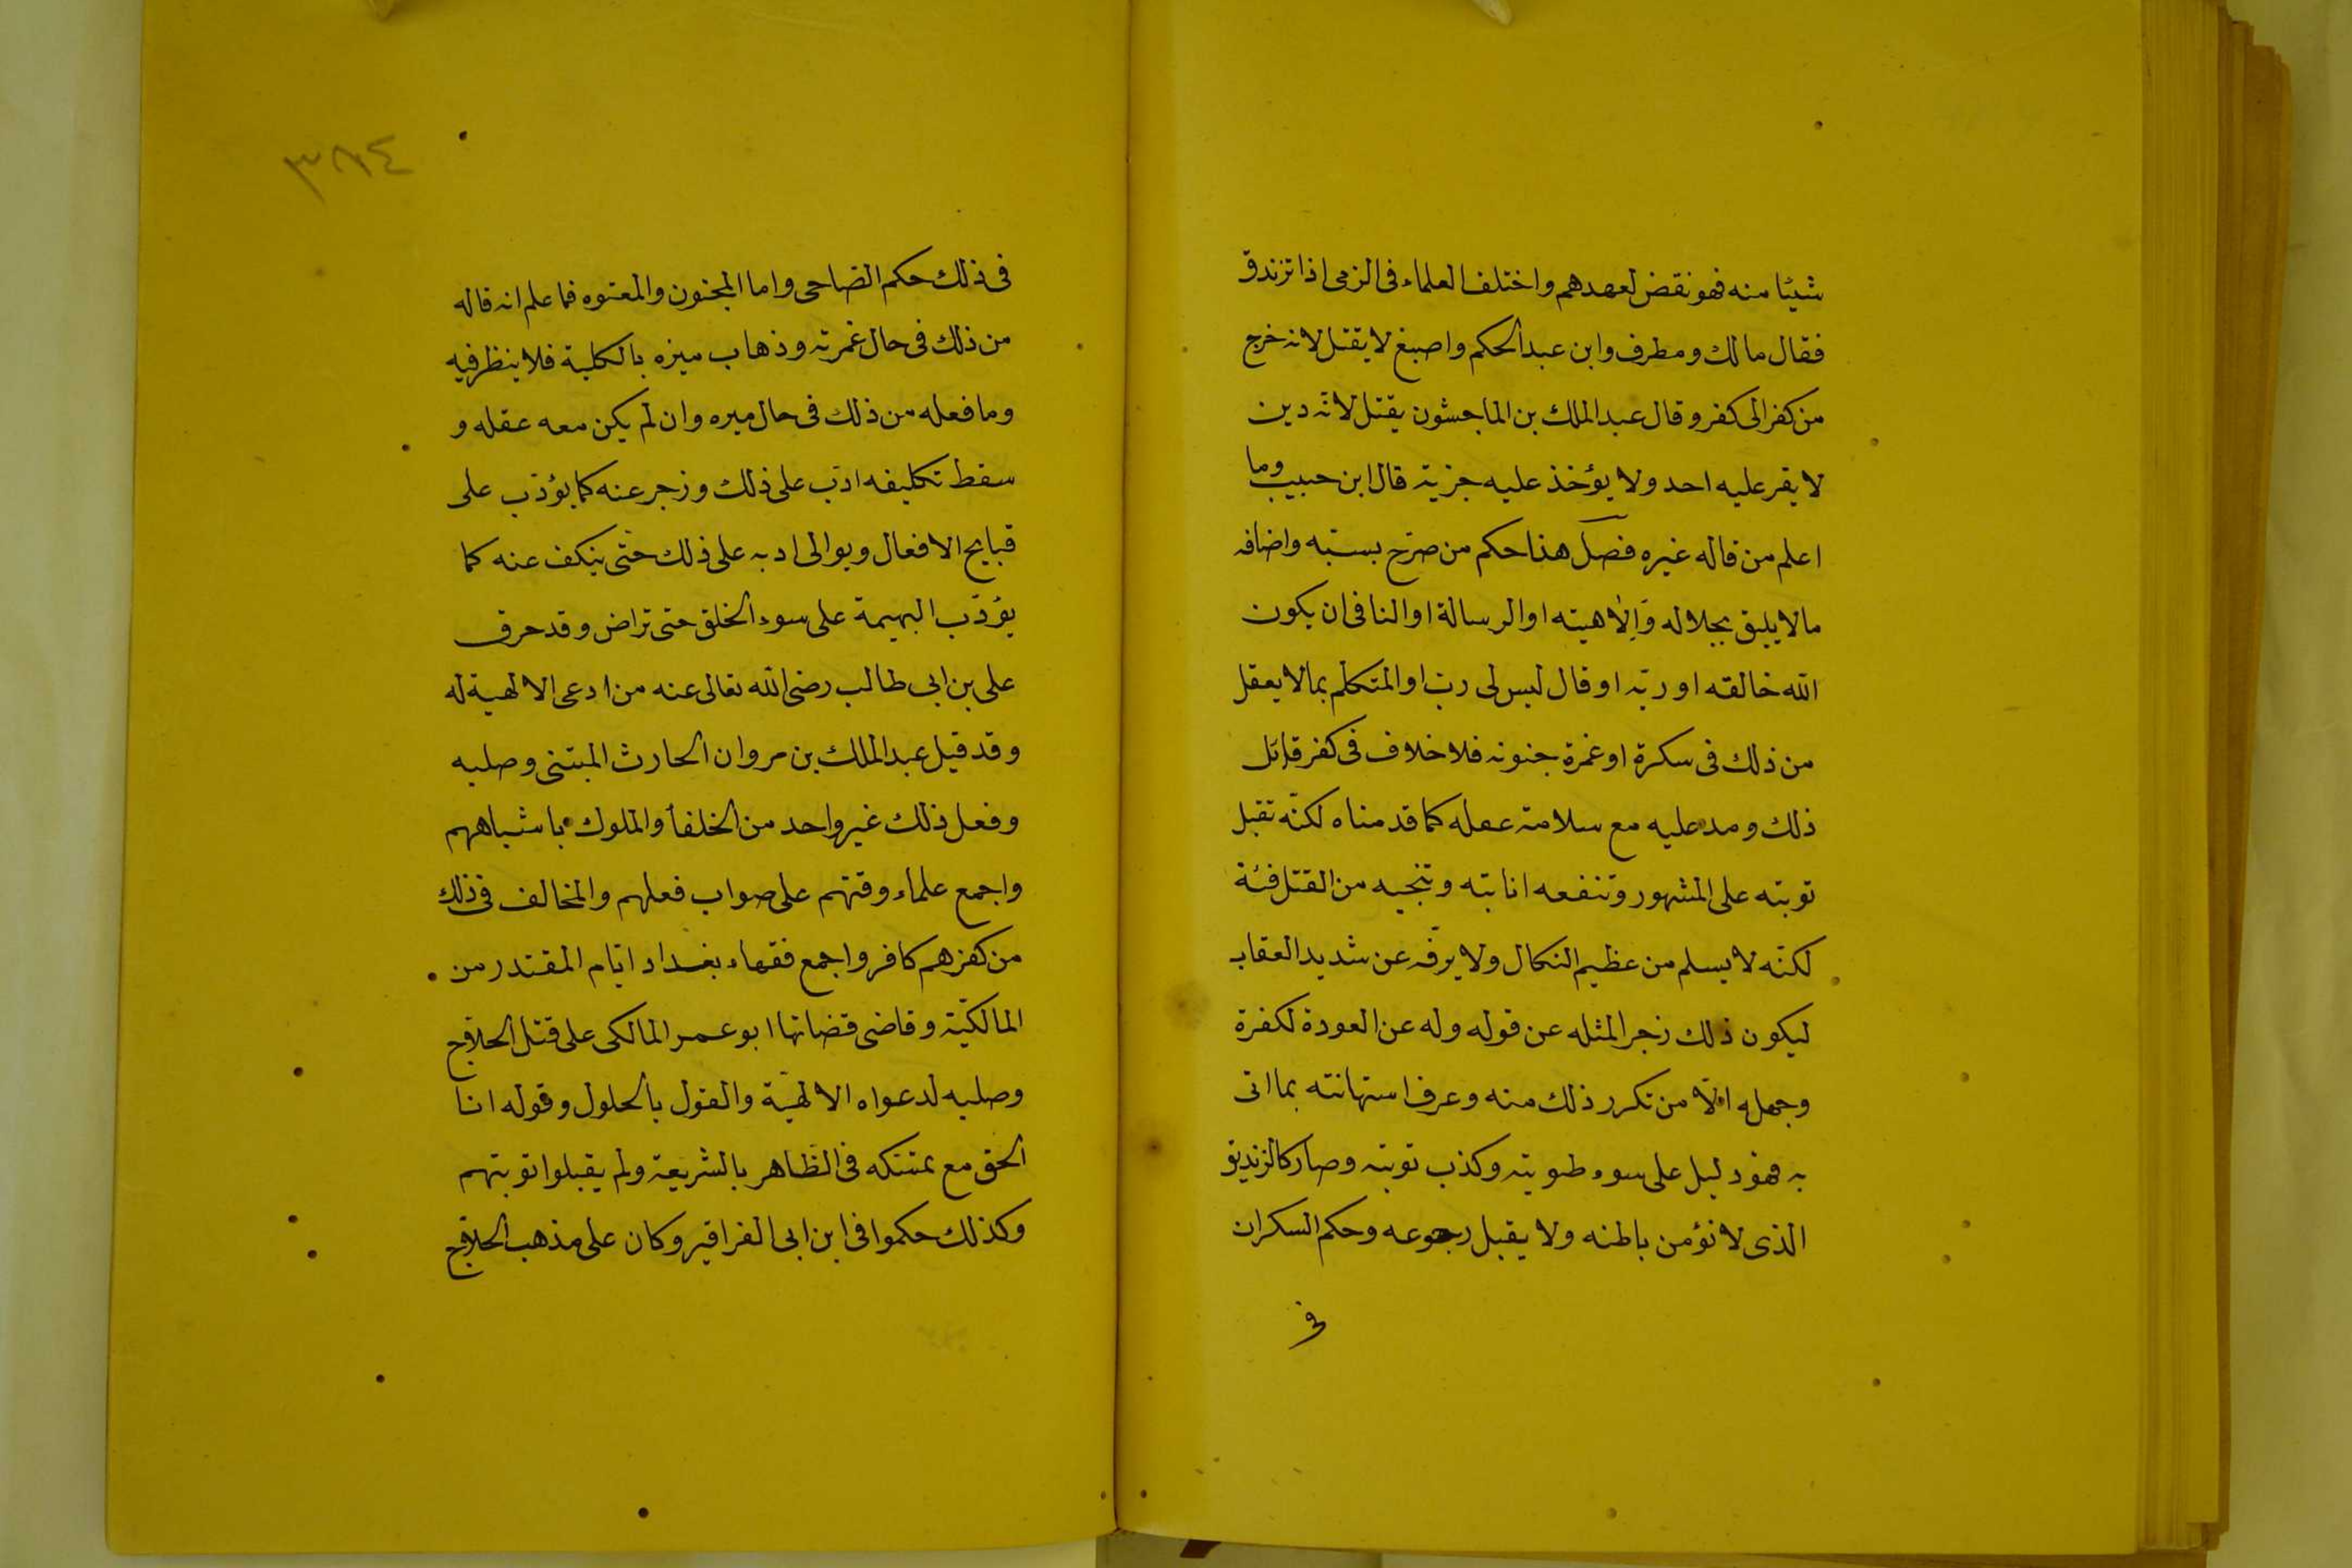 شيئا منه فهو نقض لعهدهم واختلف العلماء فى الزمى اذا تزندق
فقال مالك ومطرف وابن عبد الحكم واصبغ لا يقتل لانه خرج
من كفر الى كفر وقال عبد الملك بن الماجشون يقتل لانه دين
لا يقر عليه احد ولا يؤخذ عليه جزية قال ابن حبيب وما
اعلم من قاله غيره فصل هذا حكم من صرّح بسبّه واضافه
مالا يليق بجلاله وَاِلاهيته او الرسالة او النافى ان يكون
الله خالقه او ربّه او قال ليس لى ربّ او المتكلم بما لا يعقل
من ذلك فى سكرة او غمرة جنونه فلا خلاف فى كفر قائل
ذلك ومدعليه مع سلامة عقله كما قدمناه لكنّه تقبل
توبته على المشهور وتنفعه انابته وتنجيه من القتل فئة
لكنّه لا يسلم من عظيم النكال ولا يرفّه عن شديد العقاب
ليكون ذلك زجرا لمثله عن قوله وله عن العودة لكفرة
وجهله الّا من تكرر ذلك منه وعرف استهانته بما اتى
به فهو دليل على سوء طويته وكذب توبته وصار كالزنديق
الذى لا نؤمن باطنه ولا يقبل رجوعه وحكم السكران
فى
٣٨٤
فى ذلك حكم الصاحى واما المجنون والمعتوه فما علم انه قاله
من ذلك فى حال غمرته وذهاب ميزه بالكلية فلا ينظر فيه
وما فعله من ذلك فى حال ميره وان لم يكن معه عقله و
سقط تكليفه ادّب على ذلك وزجر عنه كما يؤدّب على
قبايح الافعال ويوالى ادبه على ذلك حتى ينكف عنه كما
يؤدّب البهيمة على سوء الخلق حتى تراض وقد حرق
على بن ابى طالب رضى الله تعالى عنه من ادعى الالهية له
وقد قيل عبد الملك بن مروان الحارث المبتنى وصلبه
وفعل ذلك غير واحد من الخلفأ والملوك باشباههم
واجمع علماء وقتهم على صواب فعلهم والمخالف فى ذلك
من كفرهم كافر واجمع فقهاء بغداد ايّام المقتدر من
المالكيّة وقاضى قضاتها ابو عمر المالكى على قتل الحلاج
وصلبه لدعواه الالهيّة والقول بالحلول وقوله انا
الحق مع تمسّكه فى الظاهر بالشريعة ولم يقبلوا توبتهم
وكذلك حكموا فى ابن ابى الفراقير وكان على مذهب الحلاج